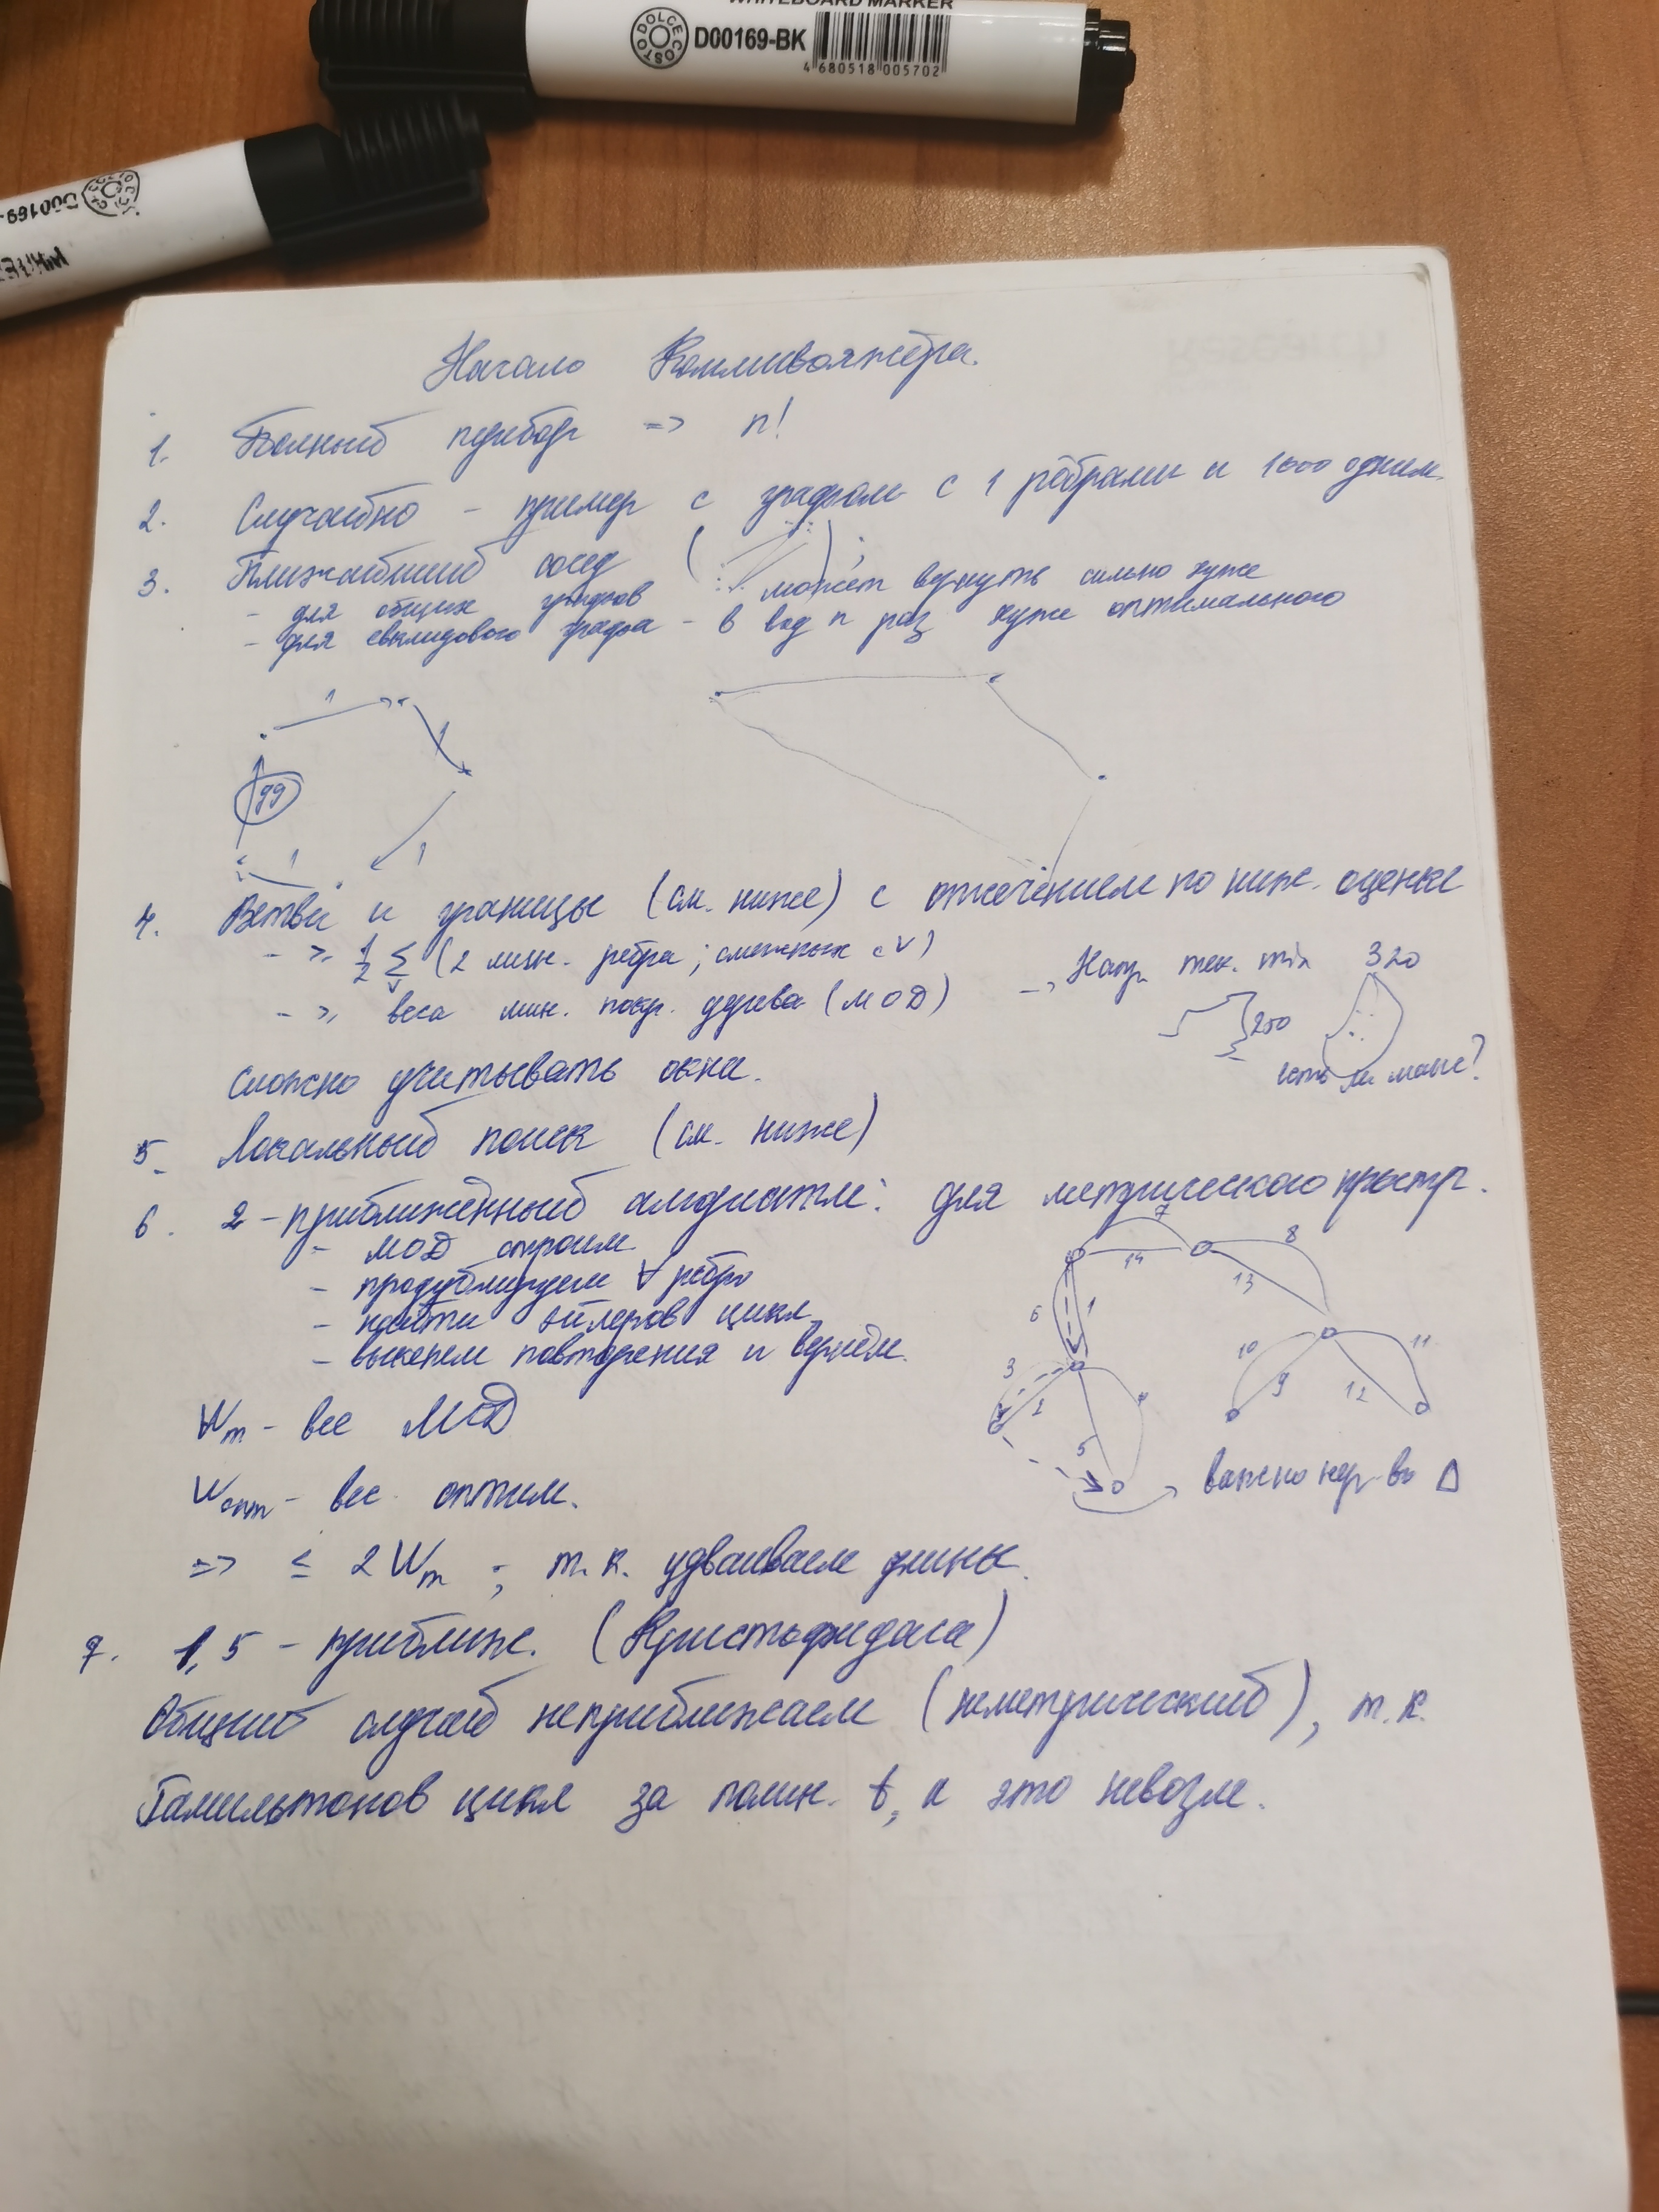 WHITEBOARD MARKER
DOLCE COSTO
D00169-BK
4 680518 005702
D00169-
WHITE
Начало Коммивояжёра.
1. Полный перебор => n!
2. Случайно - пример с графом с 1 рёбрами и 1000 одним.
3. Ближайший сосед ( ) ;
- для общих графов может вернуть сильно хуже
- для евклидового графа - в log n раз хуже оптимального
1
1
99
1
1
4. Ветви и границы (см. ниже) с отсечением по ниж. оценке
- ≥ 1/2 Σ v (2 мин. ребра; смежных с V)
- ≥ веса мин. покр. дерева (МОД)
-> Напр. тек. min 320
250
есть ли меньше?
сложно учитывать окна.
5. Локальный поиск (см. ниже)
6. 2-приближённый алгоритм: для метрического простр.
- МОД строим
- продублируем ∀ ребро
- найти эйлеров цикл
- выкенем повторения и вернём.
7
14
8
13
6
1
3
2
5
4
10
9
12
11
Wm - вес МОД
Wопт - вес оптим.
важно нер-во Δ
=> ≤ 2Wm ; т.к. удваиваем длины.
7. 1,5 - приближ. (Кристофидаса)
Общий случай неприближаем (неметрический), т.к.
Гамильтонов цикл за полин. t, а это невозм.